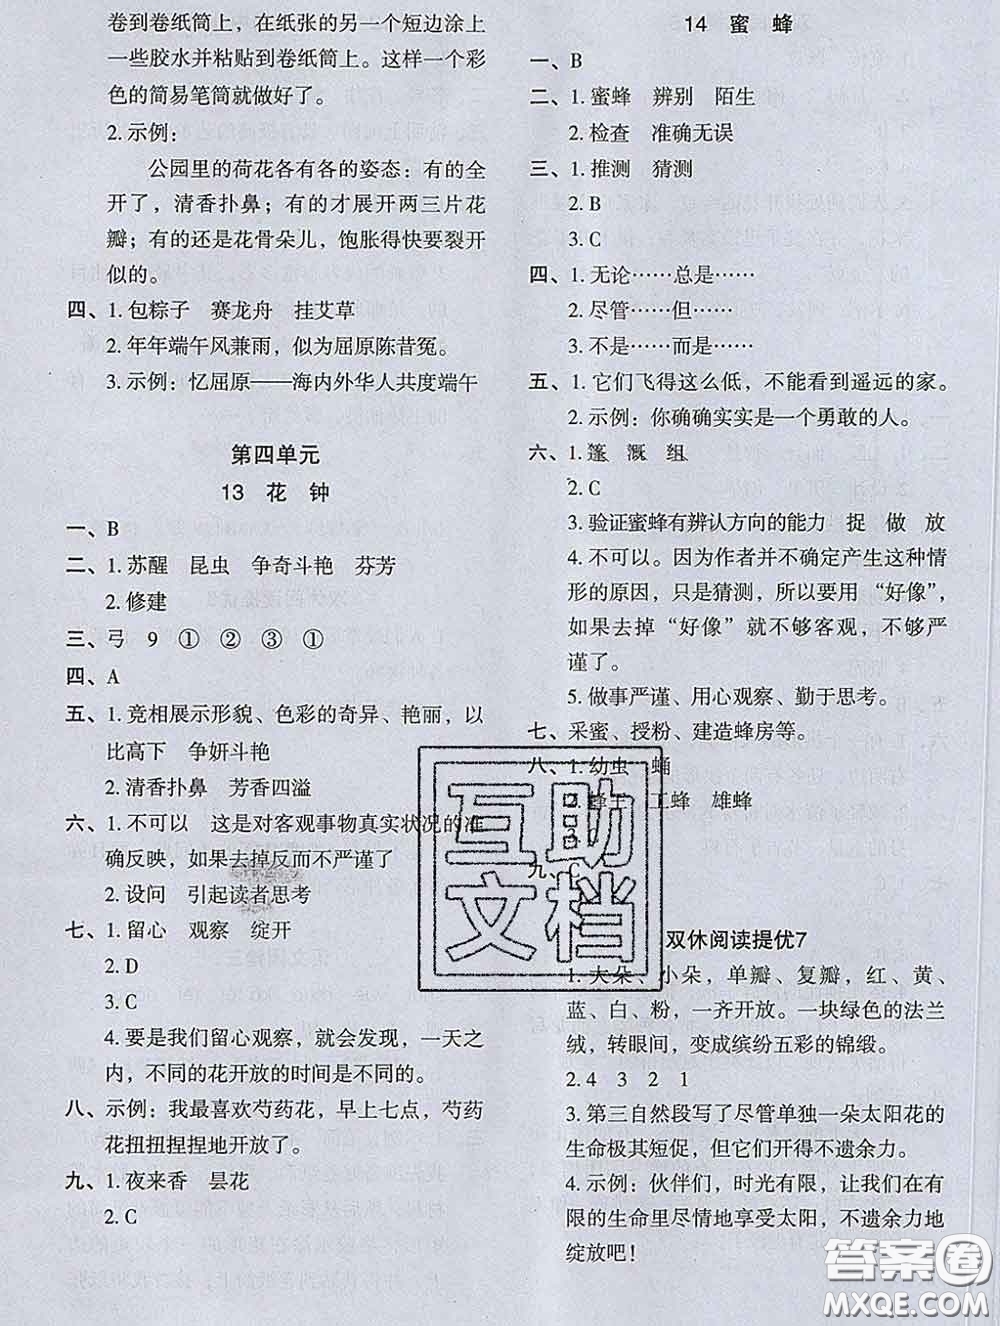 卷到卷纸筒上，在纸张的另一个短边涂上
一些胶水并粘贴到卷纸筒上。这样一个彩
色的简易笔筒就做好了。
2. 示例：
公园里的荷花各有各的姿态：有的全
开了，清香扑鼻；有的才展开两三片花
瓣；有的还是花骨朵儿，饱胀得快要裂开
似的。
四、1. 包粽子 赛龙舟 挂艾草
2. 年年端午风兼雨，似为屈原陈昔冤。
3. 示例：忆屈原——海内外华人共度端午
第四单元
13 花 钟
一、B
二、1. 苏醒 昆虫 争奇斗艳 芬芳
2. 修建
三、弓 9 ① ② ③ ①
四、A
五、1. 竞相展示形貌、色彩的奇异、艳丽，以
比高下 争妍斗艳
2. 清香扑鼻 芳香四溢
六、1. 不可以 这是对客观事物真实状况的准
确反映，如果去掉反而不严谨了
2. 设问 引起读者思考
七、1. 留心 观察 绽开
2. D
3. C
4. 要是我们留心观察，就会发现，一天之
内，不同的花开放的时间是不同的。
八、示例：我最喜欢芍药花，早上七点，芍药
花扭扭捏捏地开放了。
九、1. 夜来香 昙花
2. C
14 蜜 蜂
一、B
二、1. 蜜蜂 辨别 陌生
2. 检查 准确无误
三、1. 推测 猜测
2. B
3. C
四、1. 无论……总是……
2. 尽管……但……
3. 不是……而是……
五、1. 它们飞得这么低，不能看到遥远的家。
2. 示例：你确确实实是一个勇敢的人。
六、1. 篷 溉 组
2. C
3. 验证蜜蜂有辨认方向的能力 捉 做 放
4. 不可以。因为作者并不确定产生这种情
形的原因，只是猜测，所以要用“好像”，
如果去掉“好像”就不够客观，不够严
谨了。
5. 做事严谨、用心观察、勤于思考。
七、采蜜、授粉、建造蜂房等。
八、1. 幼虫 蛹
2. 蜂王 工蜂 雄蜂
3.
九、
互助
文档
双休阅读提优7
1. 大朵、小朵，单瓣、复瓣，红、黄、
蓝、白、粉，一齐开放。一块绿色的法兰
绒，转眼间，变成缤纷五彩的锦缎。
2. 4 3 2 1
3. 第三自然段写了尽管单独一朵太阳花的
生命极其短促，但它们开得不遗余力。
4. 示例：伙伴们，时光有限，让我们在有
限的生命里尽情地享受太阳，不遗余力地
绽放吧！
答案圈
MXQE.COM